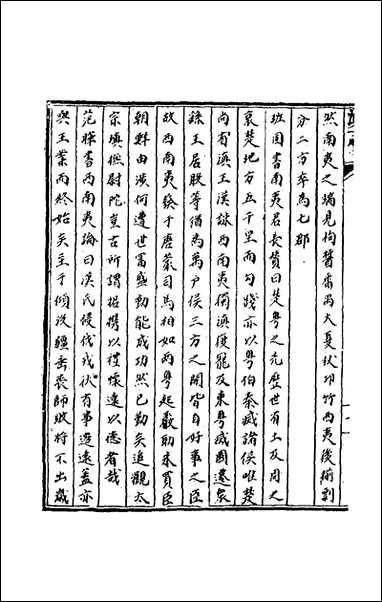 然南夷之端見枸醬番禺大夏杖邛竹西夷後揃剽
分二方卒為七郡
班固書南夷君長贊曰楚粤之先歷世有土及周之
衰楚地方五千里而句踐亦以粤伯秦滅諸侯唯楚
尚有滇王漢誅西南夷獨滇復寵及東粤滅國遷衆
繇王居股等猶為萬户侯三方之開皆自好事之臣
故西南夷發于唐蒙司馬相如兩粤起嚴助朱買臣
朝鮮由涉何遭世富盛動能成功然已勤矣追觀太
宗塡撫尉陀豈古所謂招攜以禮懷遠以德者哉
范曄書西南夷論曰漢氏征伐戎狄有事邊遠蓋亦
與王業而終始矣至于傾沒疆垂喪師敗將不出歲